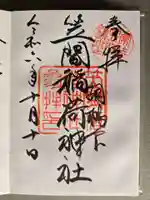 奉拝
胡桃下
笠間稲荷神社
令和六年十月十日